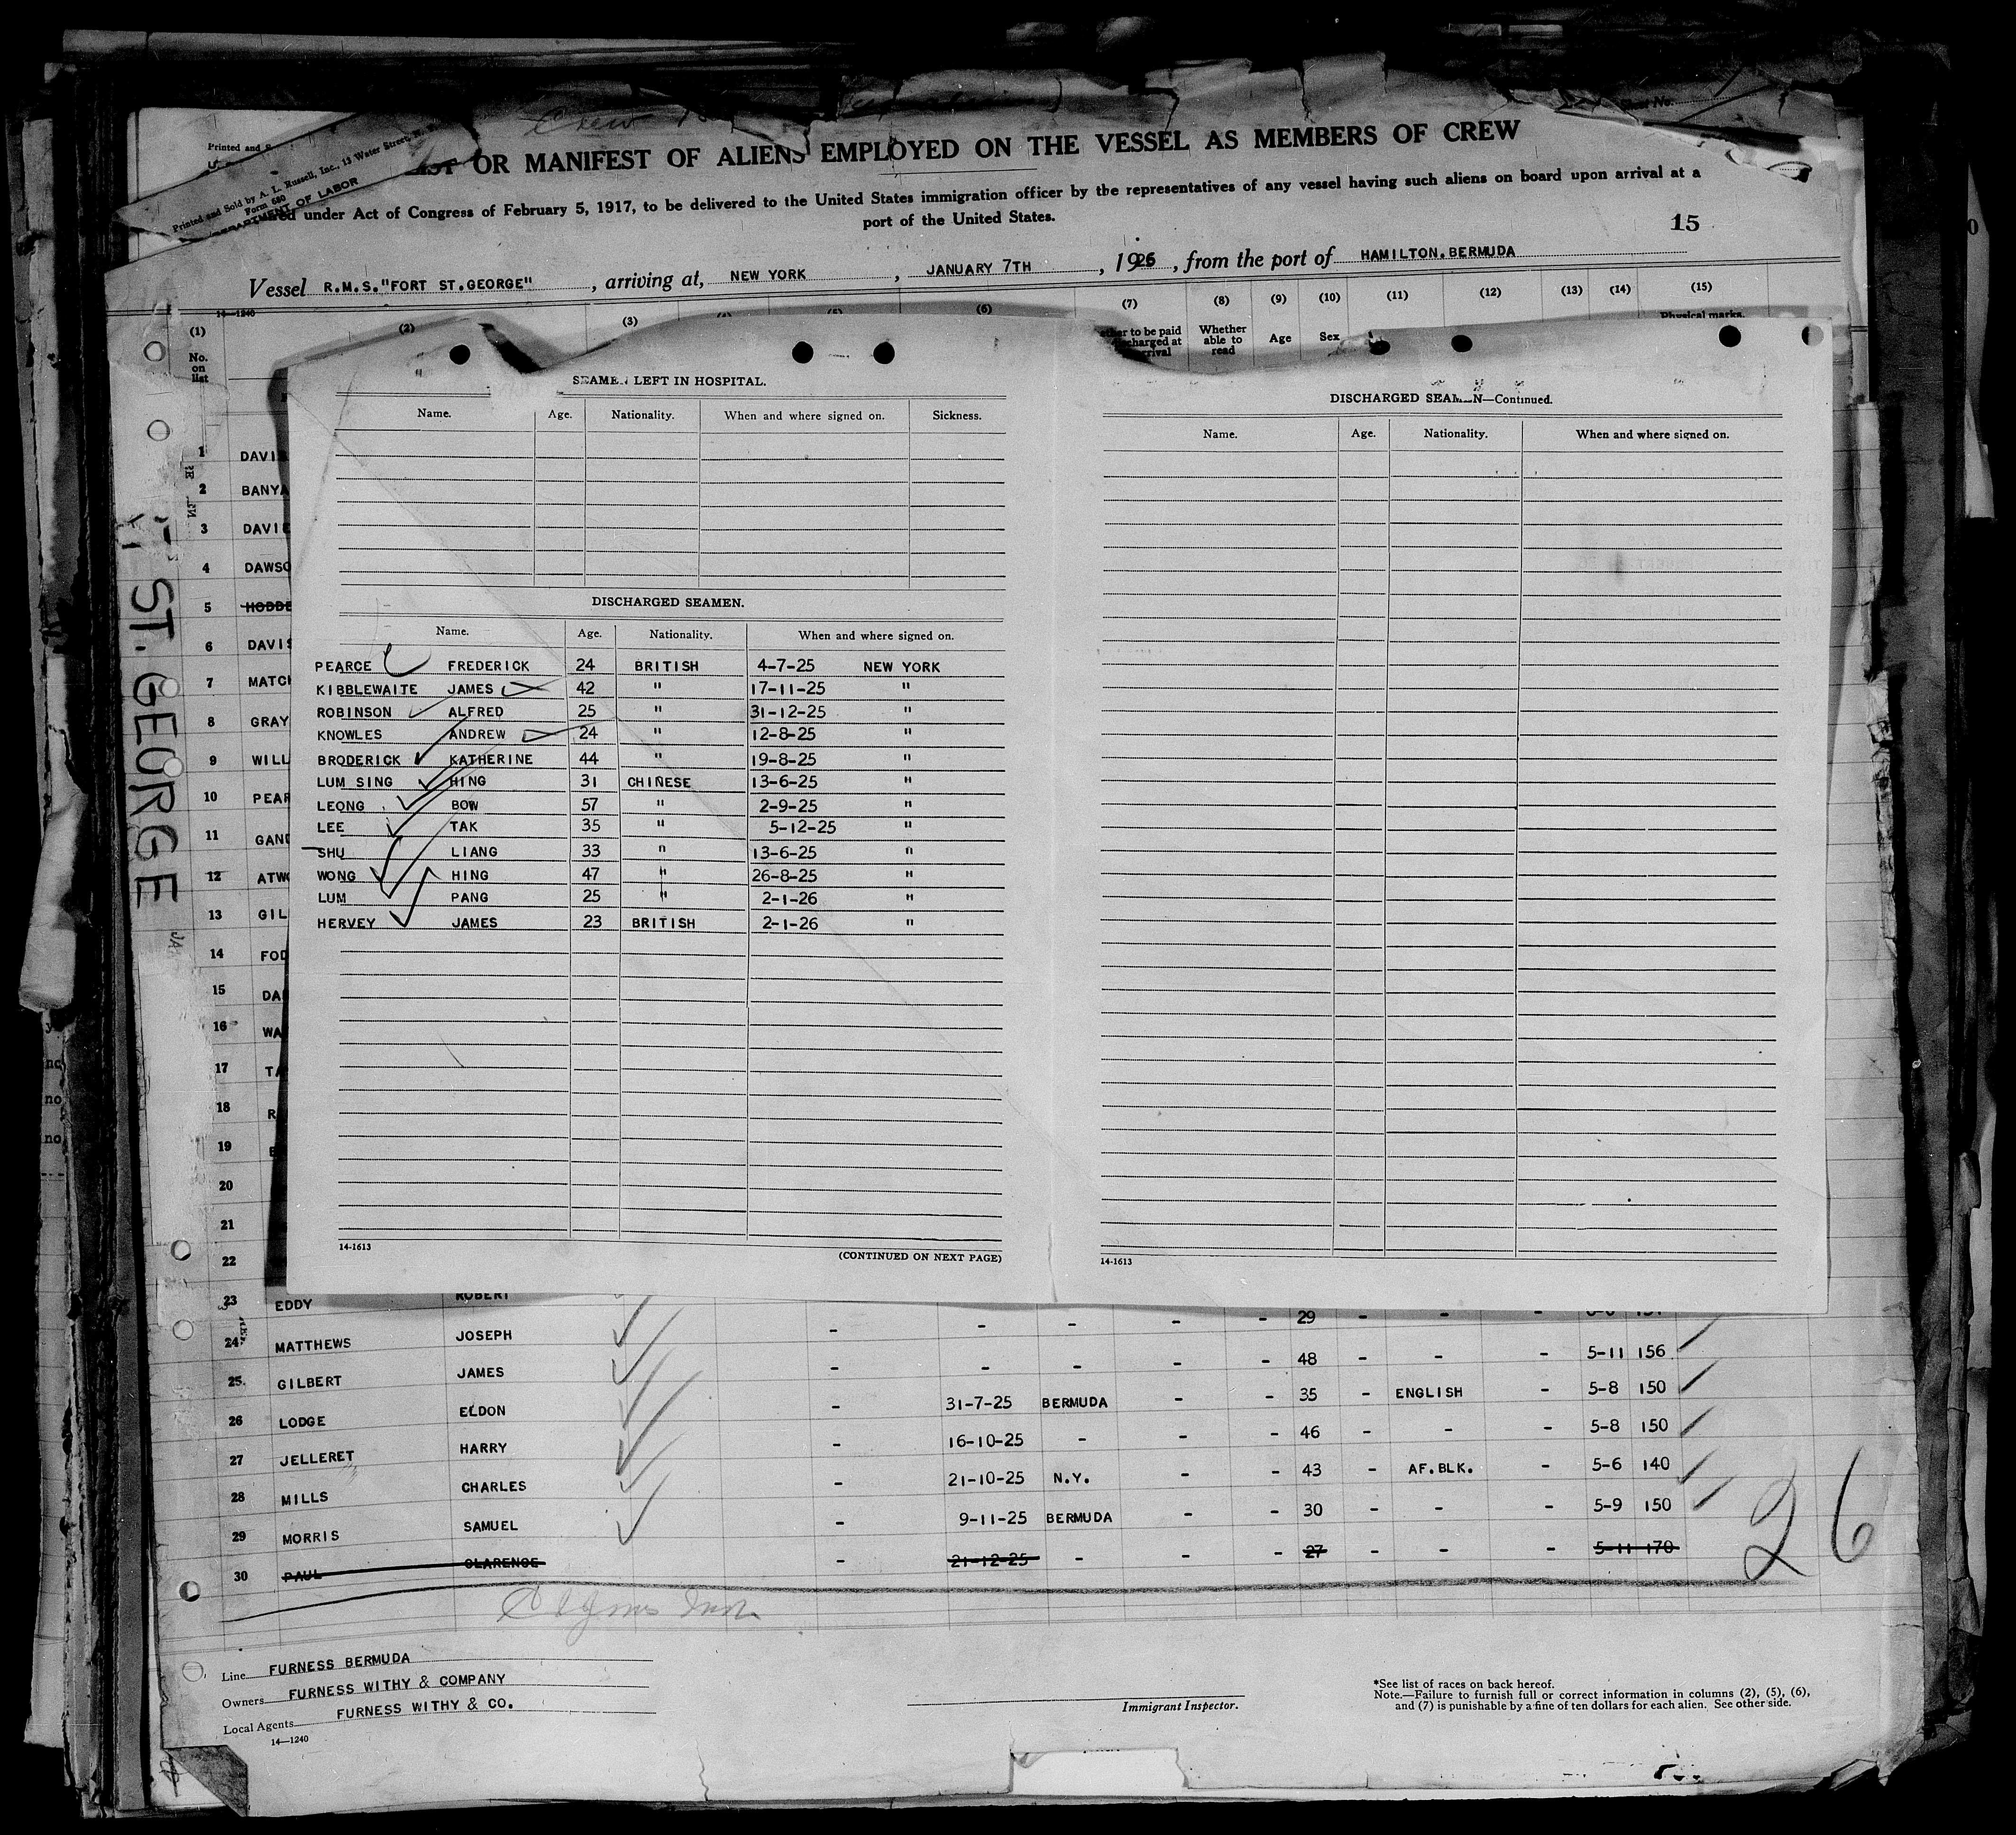 Printed and S
Printed and Sold by A. L. Russell, Inc., 13 Water Street, N.
Form 680
DEPARTMENT OF LABOR
Crew
No.
LIST OR MANIFEST OF ALIENS EMPLOYED ON THE VESSEL AS MEMBERS OF CREW
under Act of Congress of February 5, 1917, to be delivered to the United States immigration officer by the representatives of any vessel having such aliens on board upon arrival at a
port of the United States.
15
Vessel R.M.S."FORT ST.GEORGE" , arriving at, NEW YORK , JANUARY 7TH , 1926 , from the port of HAMILTON.BERMUDA
14—1240
(1) (2) (3) (4) (5) (6) (7) (8) (9) (10) (11) (12) (13) (14) (15)
No. on list
to be paid
charged at
Whether able to read
Age
Sex
Physical marks,
ST. GEORGE
1 DAVI
2 BANYA
3 DAVIE
4 DAWSO
5 HODDE
6 DAVIS
7 MATCH
8 GRAY
9 WILL
10 PEAR
11 GAND
12 ATWO
13 GIL
14 FOD
15 DA
16 WA
17 TA
18 R
19 E
20
21
22
SEAMEN LEFT IN HOSPITAL.
Name. Age. Nationality. When and where signed on. Sickness.
DISCHARGED SEAMEN.
Name. Age. Nationality. When and where signed on.
PEARCE FREDERICK 24 BRITISH 4-7-25 NEW YORK
KIBBLEWAITE JAMES 42 " 17-11-25 "
ROBINSON ALFRED 25 " 31-12-25 "
KNOWLES ANDREW 24 " 12-8-25 "
BRODERICK KATHERINE 44 " 19-8-25 "
LUM SING HING 31 CHINESE 13-6-25 "
LEONG BOW 57 " 2-9-25 "
LEE TAK 35 " 5-12-25 "
SHU LIANG 33 " 13-6-25 "
WONG HING 47 " 26-8-25 "
LUM PANG 25 " 2-1-26 "
HERVEY JAMES 23 BRITISH 2-1-26 "
14-1613
(CONTINUED ON NEXT PAGE)
DISCHARGED SEAMEN—Continued.
Name. Age. Nationality. When and where signed on.
14-1613
23 EDDY ROBERT
24 MATTHEWS JOSEPH - - - - - 29 - - -
25 GILBERT JAMES - - - - - 48 - - - 5-11 156
26 LODGE ELDON - 31-7-25 BERMUDA - - 35 - ENGLISH - 5-8 150
27 JELLERET HARRY - 16-10-25 - - - 46 - - - 5-8 150
28 MILLS CHARLES - 21-10-25 N.Y. - - 43 - AF.BLK. - 5-6 140
29 MORRIS SAMUEL - 9-11-25 BERMUDA - - 30 - - - 5-9 150
30 PAUL CLARENCE - 21-12-25 - - - 27 - - - 5-11 170
26
Line FURNESS BERMUDA
Owners FURNESS WITHY & COMPANY
Local Agents FURNESS WITHY & CO.
14—1240
Immigrant Inspector.
*See list of races on back hereof.
Note.—Failure to furnish full or correct information in columns (2), (5), (6),
and (7) is punishable by a fine of ten dollars for each alien. See other side.